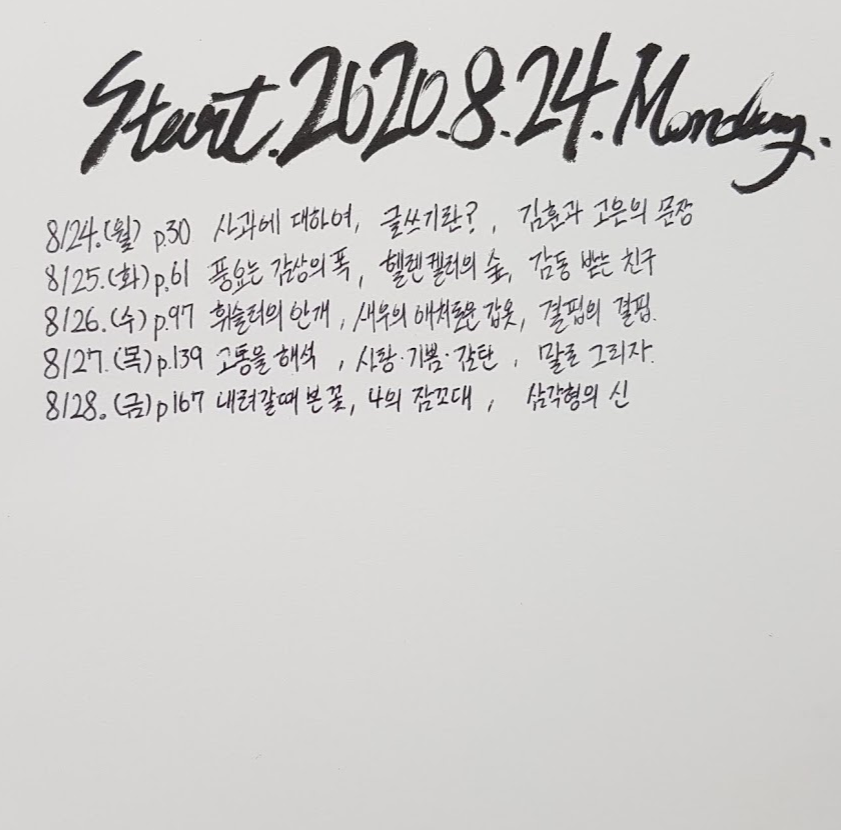 Start. 2020. 8. 24. Monday.
8/24.(월) p.30 사과에 대하여, 글쓰기란?, 김훈과 고은의 문장
8/25.(화) p.61 풍요는 감상의 폭, 헬렌켈러의 숲, 감동 받는 친구
8/26.(수) p.97 휘슬러의 안개, 새우의 애처로운 갑옷, 결핍의 결핍.
8/27.(목) p.139 고통을 해석, 사랑·기쁨·감탄, 말로 그리자.
8/28.(금) p167 내려갈때 본 꽃, 나의 잠꼬대, 삼각형의 신